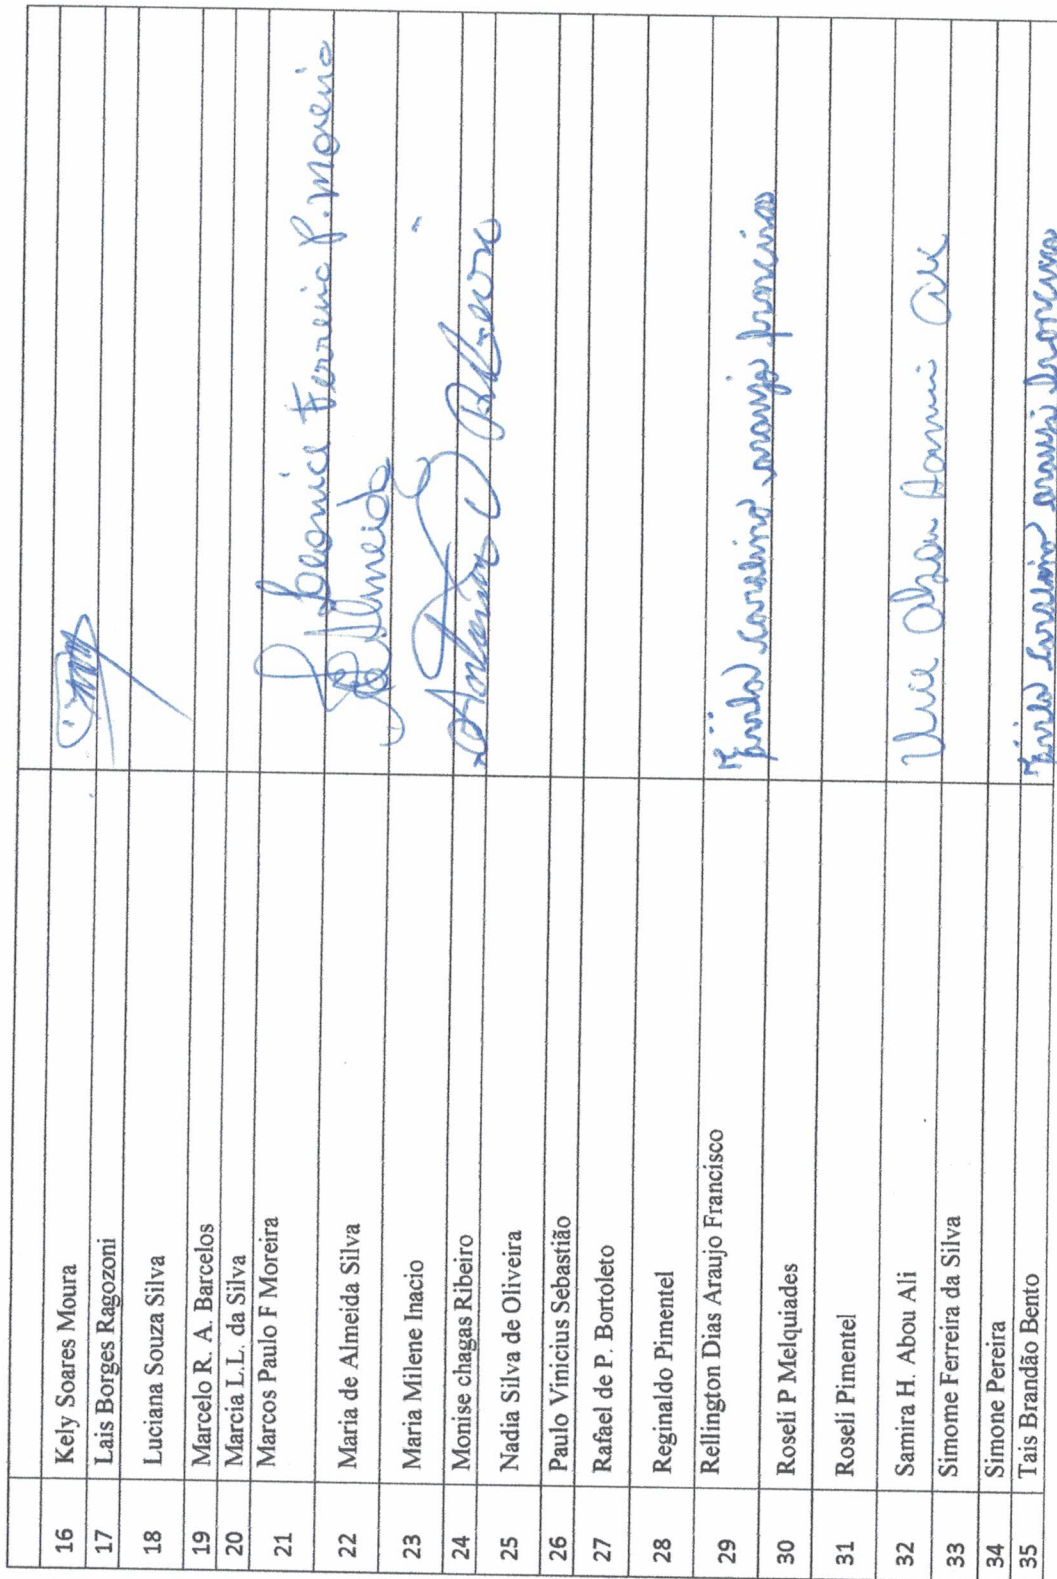 16 Kely Soares Moura
17 Lais Borges Ragozoni
18 Luciana Souza Silva
19 Marcelo R. A. Barcelos
20 Marcia L.L. da Silva
21 Marcos Paulo F Moreira Leonice Ferreira P. Moreira
22 Maria de Almeida Silva Almeida
23 Maria Milene Inacio
24 Monise chagas Ribeiro Antonio
25 Nadia Silva de Oliveira
26 Paulo Vinicius Sebastião
27 Rafael de P. Bortoleto
28 Reginaldo Pimentel
29 Rellington Dias Araujo Francisco araujo
30 Roseli P Melquiades
31 Roseli Pimentel
32 Samira H. Abou Ali
33 Simome Ferreira da Silva
34 Simone Pereira
35 Tais Brandão Bento